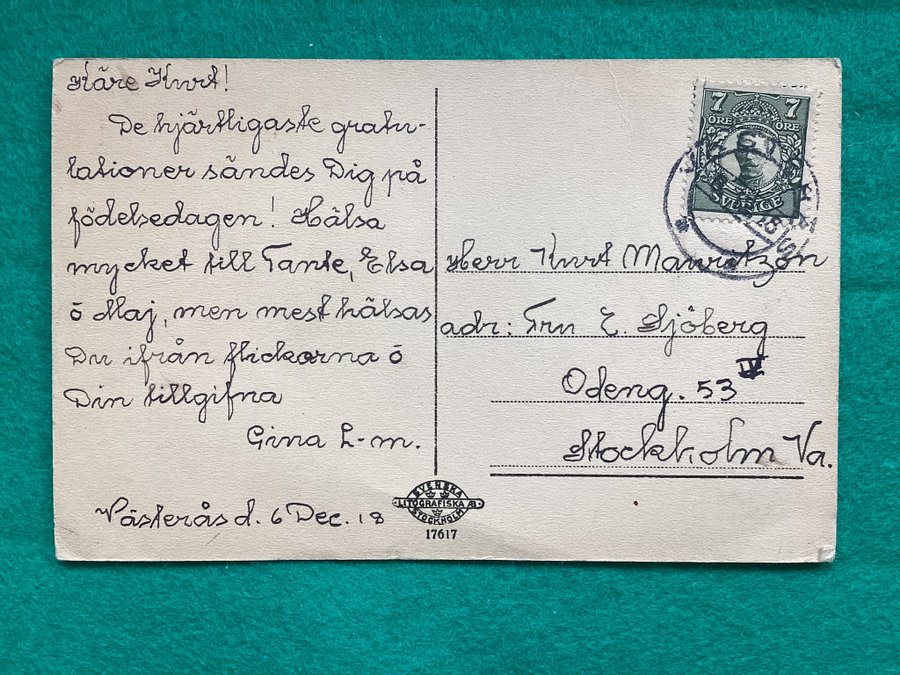 Käre Kurt!
De hjärtligaste gratu-
lationer sändes Dig på
födelsedagen! Hälsa
mycket till Tante, Elsa
o Maj, men mest hälsas
Du ifrån flickorna o
Din tillgifna
Gina L-m.
Västerås d. 6 Dec. 18
SVENSKA
LITOGRAFISKA AB
STOCKHOLM
17617
7 7
ÖRE ÖRE
SVERIGE
Herr Kurt Mauritzon
adr: Fru E. Sjöberg
Odeng. 53 IV
Stockholm Va.